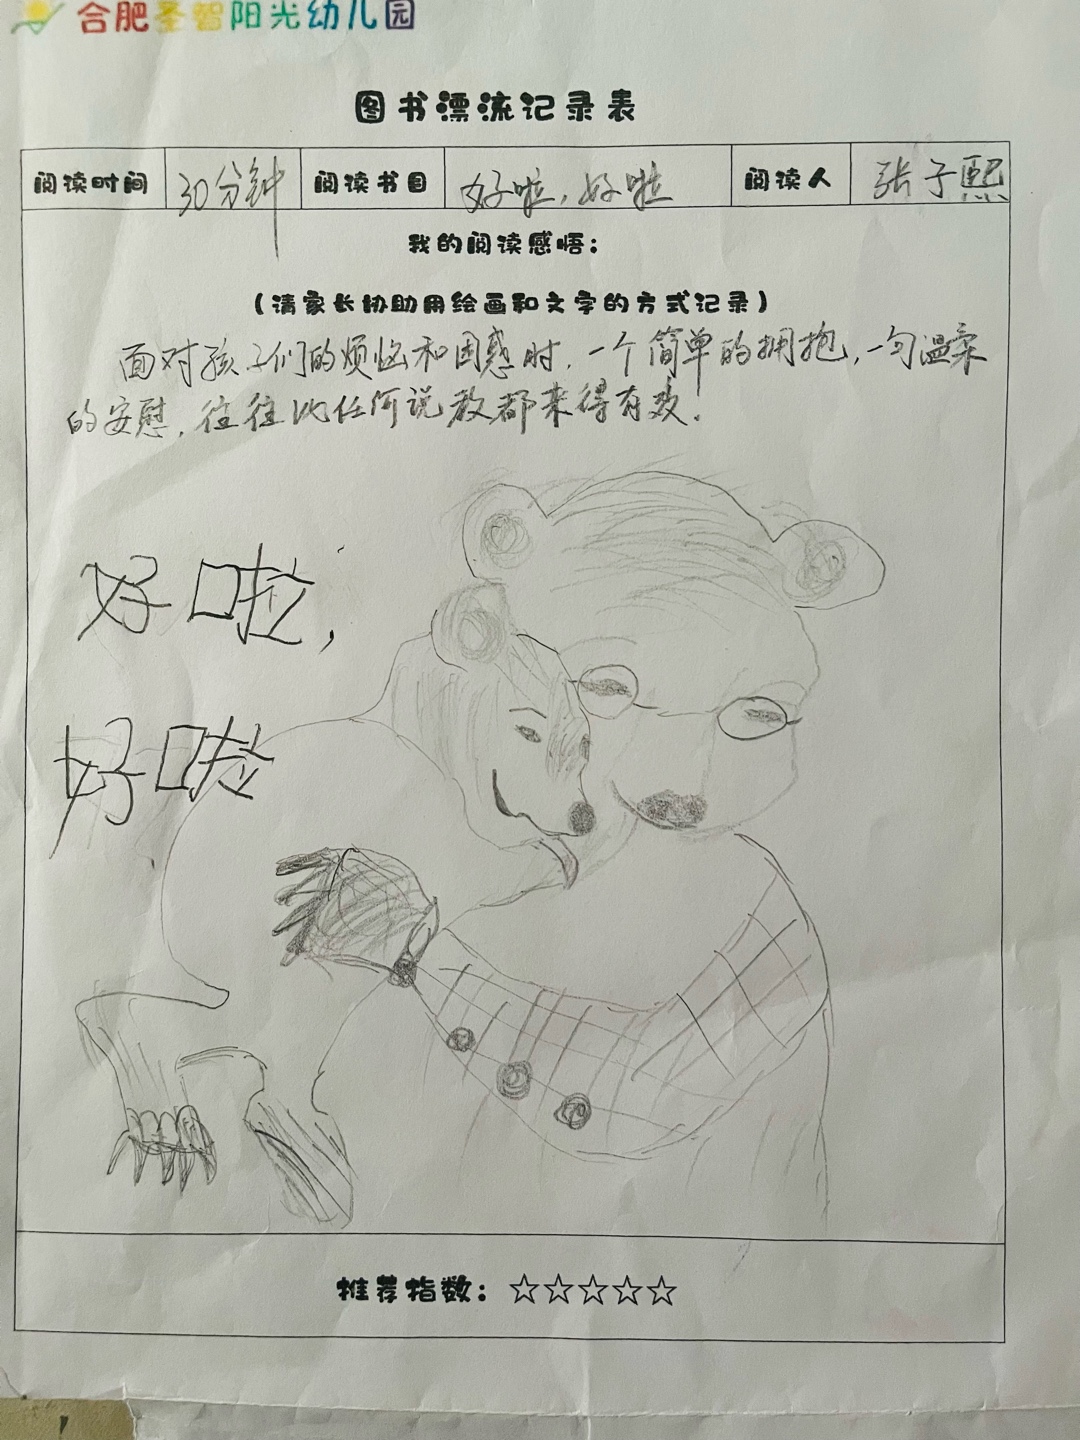 合肥圣智阳光幼儿园
图书漂流记录表
阅读时间 30分钟 阅读书目 好啦,好啦 阅读人 张子熙
我的阅读感悟:
(请家长协助用绘画和文字的方式记录)
面对孩子们的烦恼和困惑时,一个简单的拥抱,一句温柔
的安慰,往往比任何说教都来得有效.
好啦,
好啦
推荐指数:☆☆☆☆☆